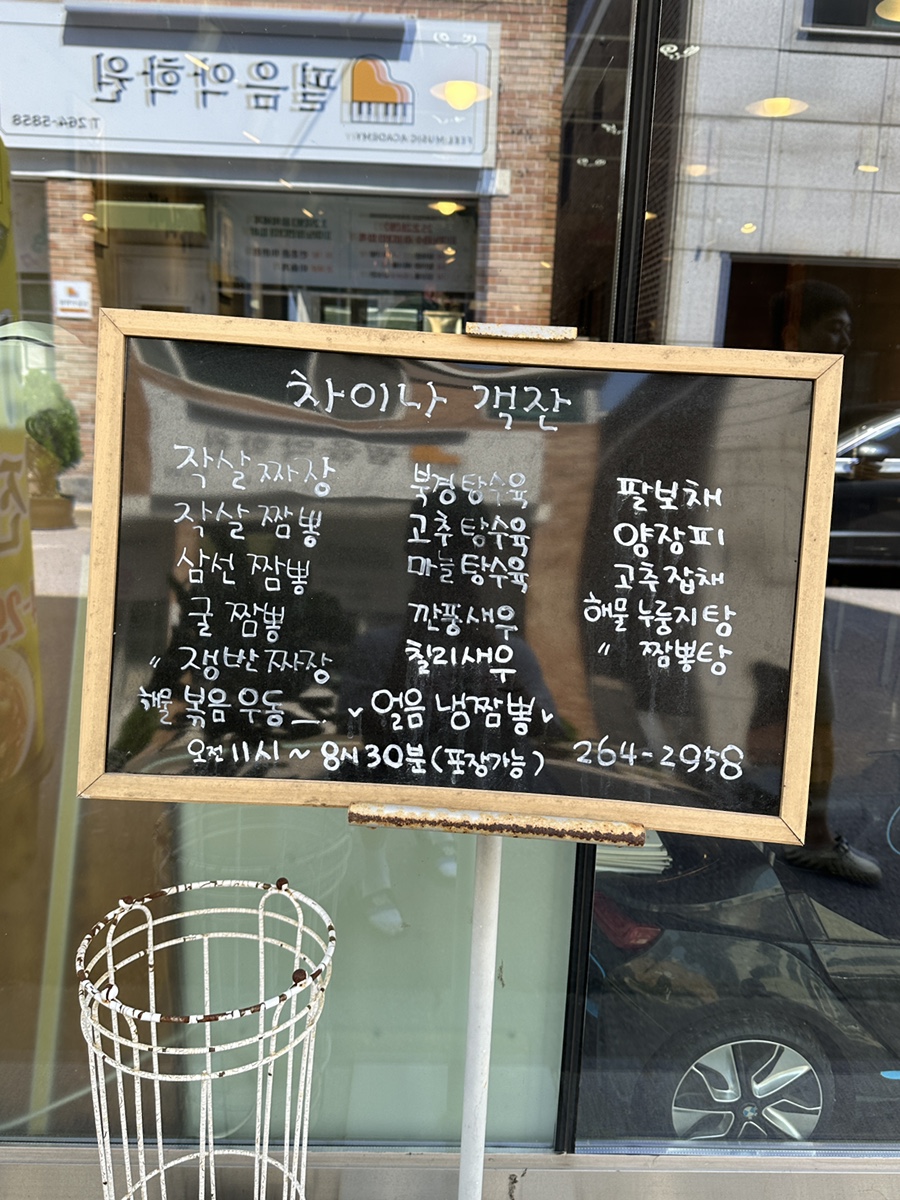 필음악학원
FEEL MUSIC ACADEMY
T.264-5858
차이나 객잔
작살 짜장
작살 짬뽕
삼선 짬뽕
굴 짬뽕
〃 쟁반짜장
해물 볶음우동
북경탕수육
고추탕수육
마늘탕수육
깐풍새우
칠리새우
얼음 냉짬뽕
팔보채
양장피
고추잡채
해물 누룽지탕
〃 짬뽕탕
오전11시~8시30분(포장가능) 264-2958